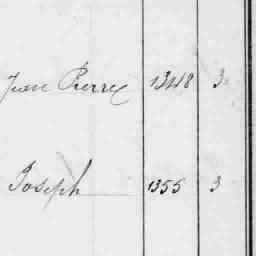 Jean Pierre 1348 3
Joseph 1355 3